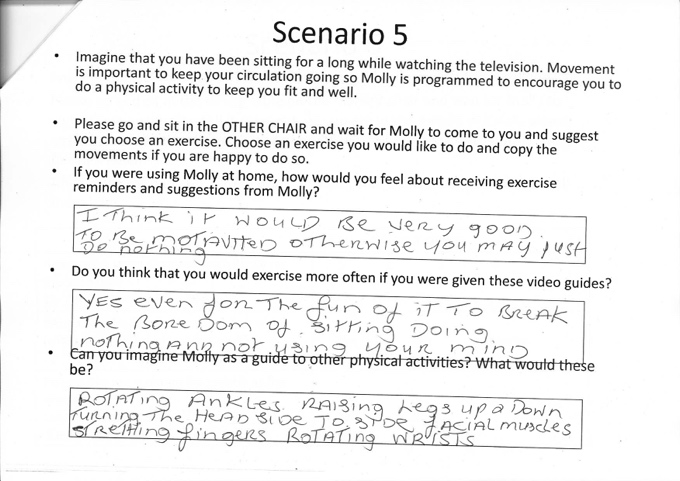 Scenario 5
• Imagine that you have been sitting for a long while watching the television. Movement
is important to keep your circulation going so Molly is programmed to encourage you to
do a physical activity to keep you fit and well.
• Please go and sit in the OTHER CHAIR and wait for Molly to come to you and suggest
you choose an exercise. Choose an exercise you would like to do and copy the
movements if you are happy to do so.
• If you were using Molly at home, how would you feel about receiving exercise
reminders and suggestions from Molly?
I Think it WOULD BE very good
TO BE MOTAVITED OTHERWISE YOU MAY just
DO nothing
• Do you think that you would exercise more often if you were given these video guides?
YES even for The fun OF iT TO BREAK
The BOREDOM OF SITTING DOING
nothing AND not using your mind
• Can you imagine Molly as a guide to other physical activities? What would these
be?
ROTATING ANKLES RAISING Legs up a DOWN
Turning The HEAD SIDE TO SIDE fACIAL muscles
STRETHING fingers ROTATING WRISTS